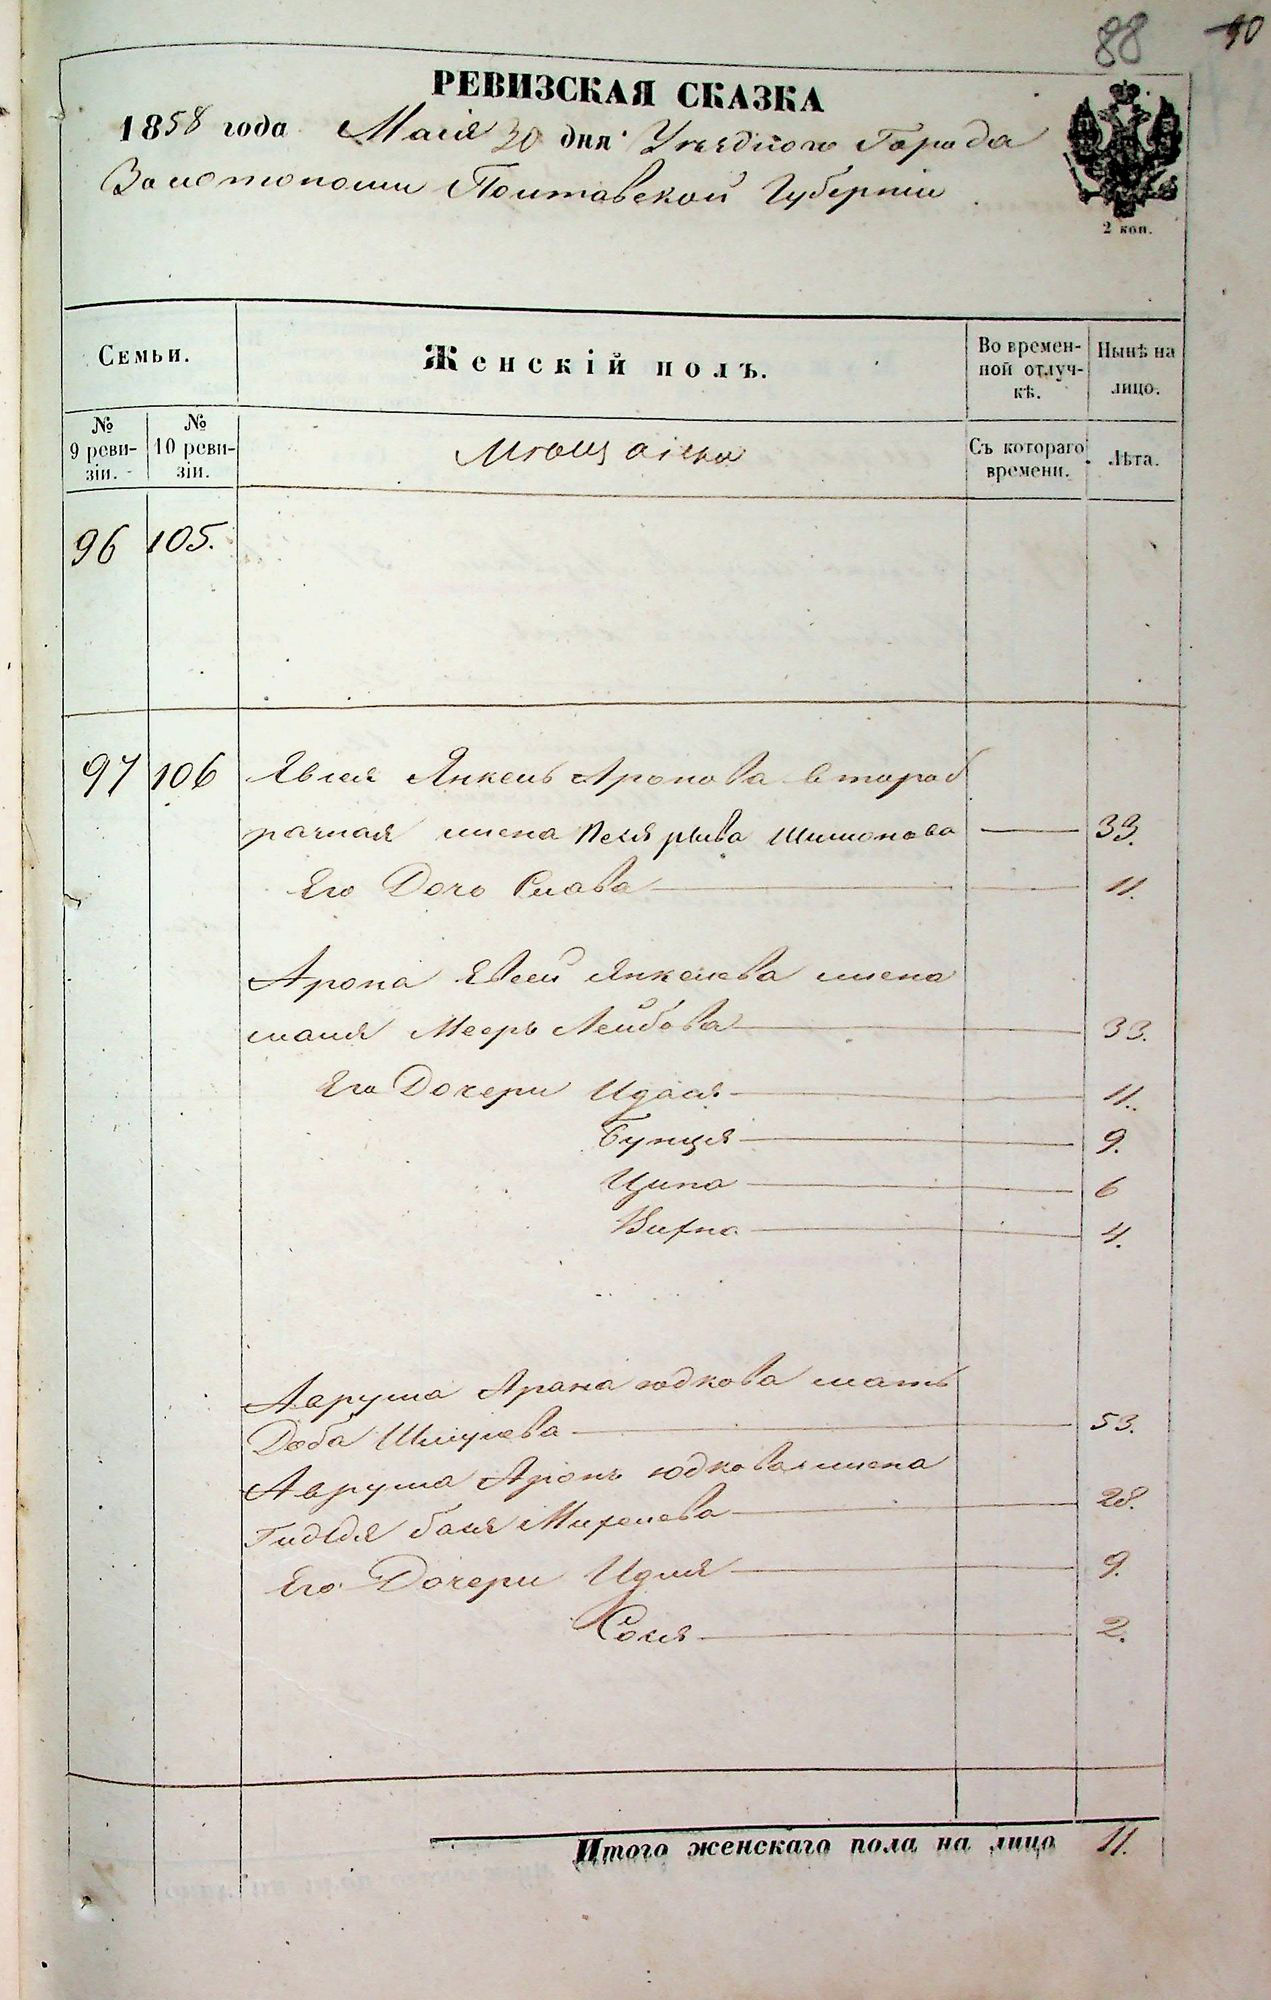 88 90
РЕВИЗСКАЯ СКАЗКА
1858 года Маія 30 дня Уѣзднаго Города
Золотоноши Полтавской Губерніи
2 коп.
Семьи. Женскій полъ. Во времен- Нынѣ на
ной отлуч-
кѣ. лицо.
№ № Мѣщанки Съ котораго Лѣта.
9 реви- 10 реви- времени.
зіи. зіи.
96 105.
97 106 Явсея Янкель Аронова второб
рачная жена Песя рыва Шимонова 33.
Его Дочь Слава 11.
Арона Явсей Янкелева жена
Мееръ Лейбова 33.
Его Дочери Идася 11.
Бунця 9.
Ципа 6
Вихна 4.
Аврума Арона Юдкова мать
Доба Шмулева 53.
Аврума Аронъ Юдкова жена
бася Михелева 28.
Его Дочери Идля 9.
Сося 2.
Итого женскаго пола на лицо 11.